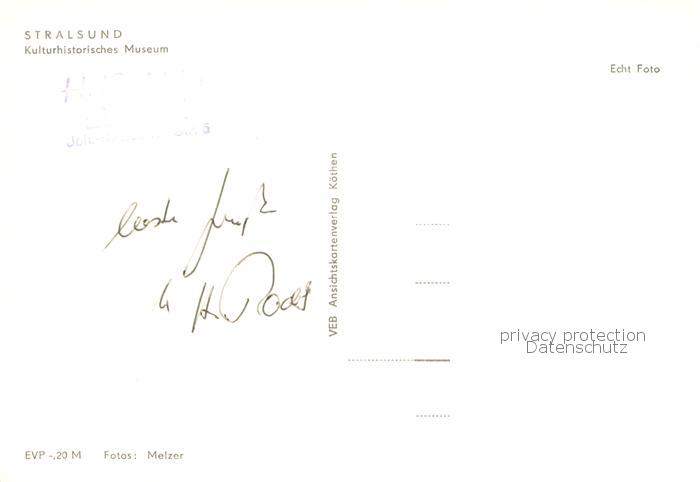 STRALSUND
Kulturhistorisches Museum
Echt Foto
VEB Ansichtskartenverlag Köthen
privacy protection
Datenschutz
EVP -,20 M Fotos: Melzer